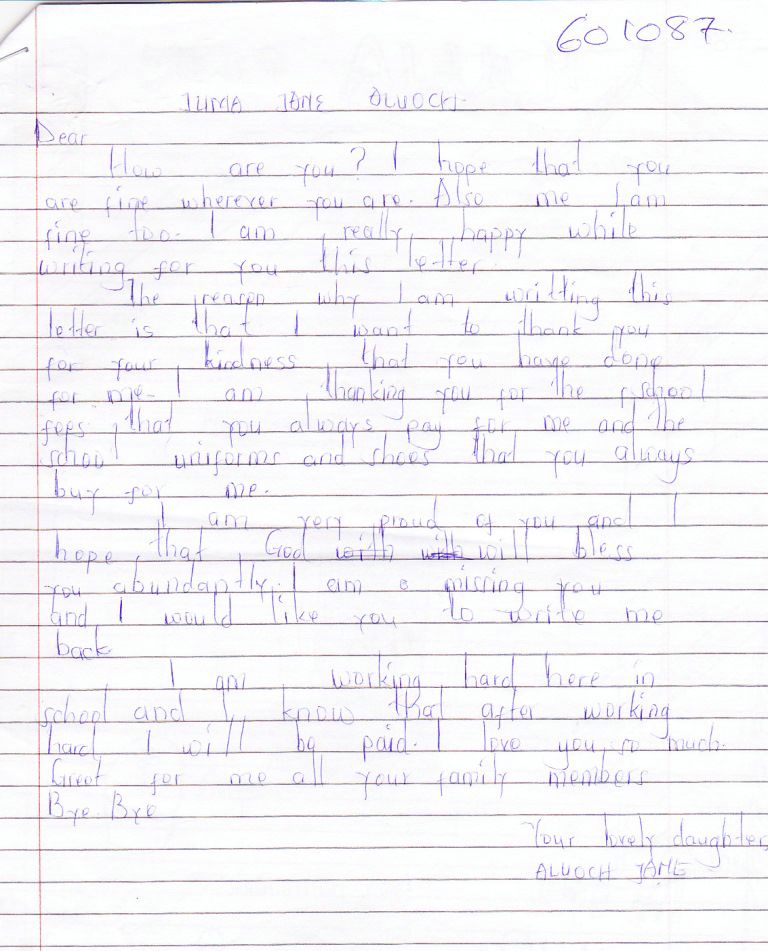 601087.
JUMA JANE ALUOCH.
Dear
How are you? I hope that you
are fine wherever you are. Also me I am
fine too. I am really happy while
writing for you this letter.
The reason why I am writting this
letter is that I want to thank you
for your kindness that you have done
for me. I am thanking you for the school
fees that you always pay for me and the
school uniforms and shoes that you always
buy for me.
I am very proud of you and I
hope that God with will will bless
you abundantly. I am missing you
and I would like you to write me
back
I am working hard here in
school and I know that after working
hard I will be paid. I love you so much.
Greet for me all your family members
Bye. Bye
Your lovely daughter
ALUOCH JANE